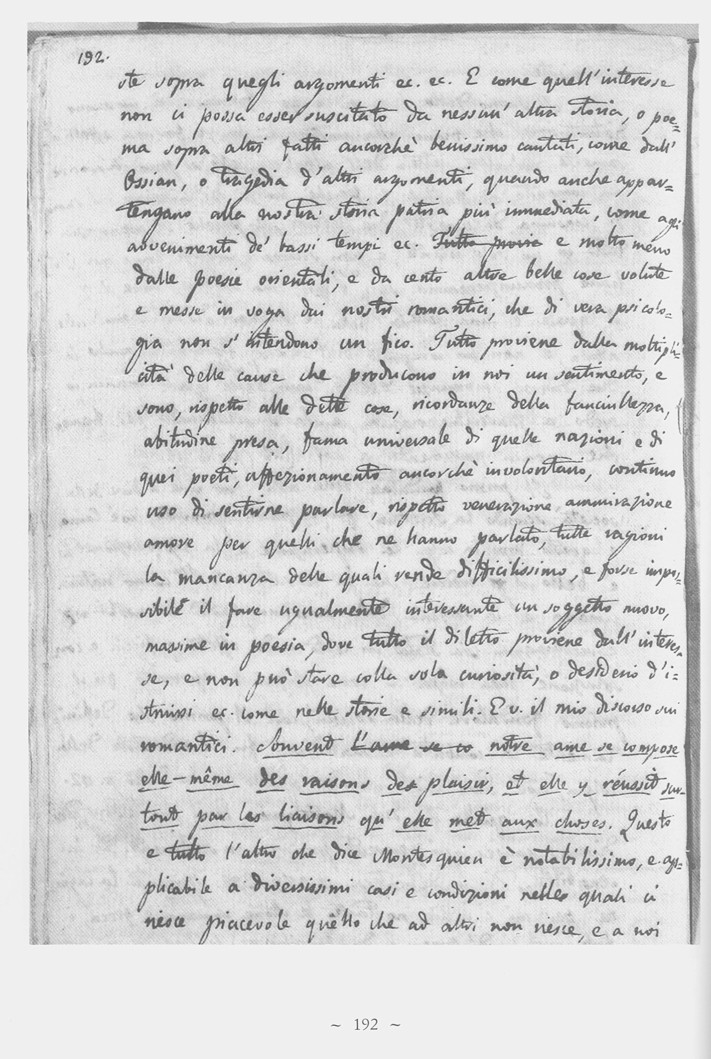 192.
ste sopra quegli argomenti ec. ec. E come quell'interesse
non ci possa esser suscitato da nessun'altra storia, o poe=
ma sopra altri fatti ancorchè benissimo cantati, come dall'
Ossian, o tragedia d'altri argomenti, quando anche appar=
tengano alla nostra storia patria più immediata, come agli
avvenimenti de' bassi tempi ec. Tutto provie e molto meno
dalle poesie orientali, e da cento altre belle cose volute
e messe in voga dai nostri romantici, che di vera psicolo=
gia non s'intendono un fico. Tutto proviene dalla moltipli=
cità delle cause che producono in noi un sentimento, e
sono, rispetto alle dette cose, ricordanze della fanciullezza,
abitudine presa, fama universale di quelle nazioni e di
quei poeti, affezionamento ancorchè involontario, continuo
uso di sentirne parlare, rispetto venerazione ammirazione
amore per quelli che ne hanno parlato, tutte ragioni
la mancanza delle quali rende difficilissimo, e forse impos=
sibile il fare ugualmente interessante un soggetto nuovo,
massime in poesia, dove tutto il diletto proviene dall'interes=
se, e non può stare colla sola curiosità, o desiderio d'i=
struirsi ec. come nelle storie e simili. E v. il mio discorso sui
romantici. Souvent l'ame se co notre ame se compose
elle-même des raisons de plaisir, et elle y réussit sur=
tout par les liaisons qu'elle met aux choses. Questo
e tutto l'altro che dice Montesquieu è notabilissimo, e ap=
plicabile a diversissimi casi e condizioni nelle quali ci
riesce piacevole quello che ad altri non riesce, e a noi
~ 192 ~